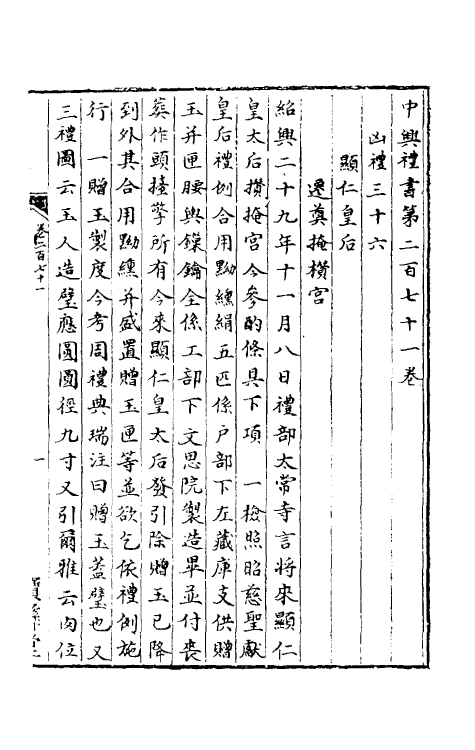 中興禮書第二百七十一卷
凶禮三十六
顯仁皇后
遷奠掩櫕宮
紹興二十九年十一月八日禮部太常寺言將來顯仁
皇太后攢掩宮今參酌條具下項　一檢照昭慈聖獻
皇后禮例合用黝纁絹五匹係户部下左藏庫支供贈
玉并匣腰輿鏁鑰全係工部下文思院製造畢並付喪
葬作頭擡擎所有今來顯仁皇太后發引除贈玉已降
到外其合用黝纁并盛置贈玉匣等並欲乞依禮例施
行　一贈玉製度今考周禮典瑞注曰贈玉蓋璧也又
三禮圖云玉人造璧應圓圓徑九寸又引爾雅云肉位
卷二百七十一
一